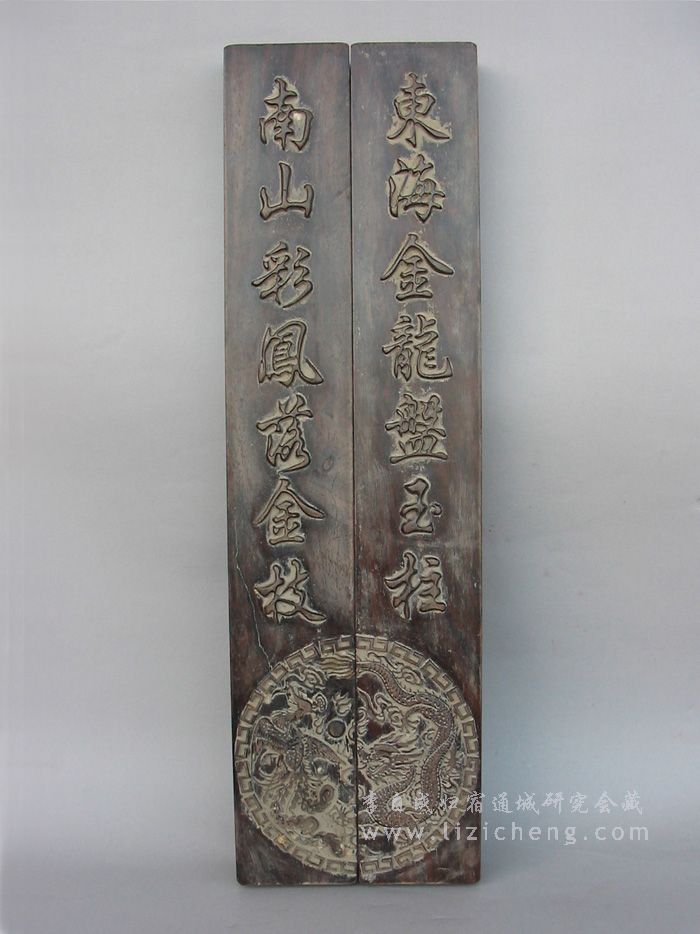 東海金龍盤玉柱
南山彩鳳落金枝
李自成归宿通城研究会藏
www.lizicheng.com